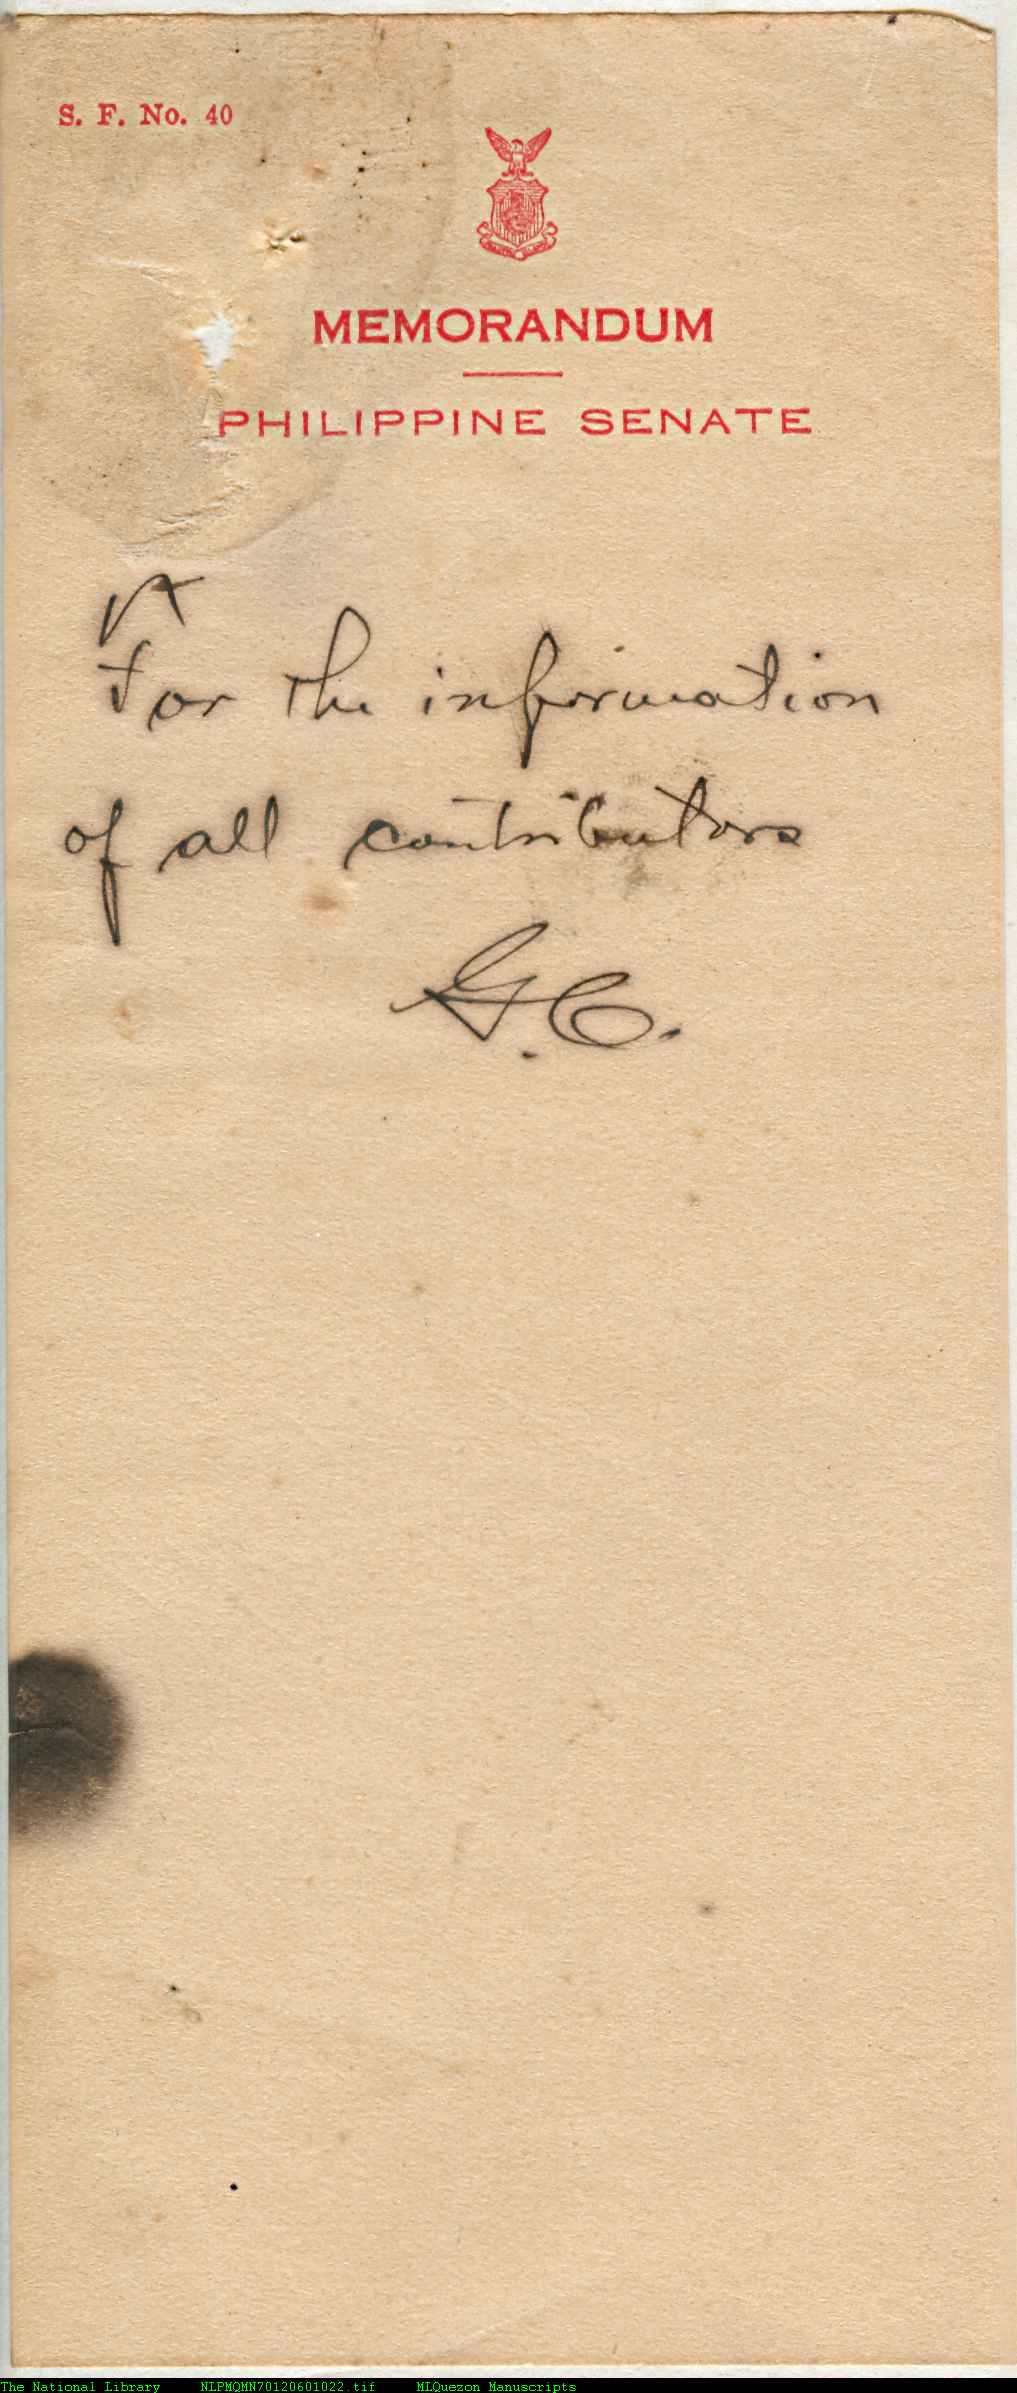 S. F. No. 40
MEMORANDUM
PHILIPPINE SENATE
For the information
of all contributors
G.C.
The National Library NLPMQMN70120601022.tif MLQuezon Manuscripts